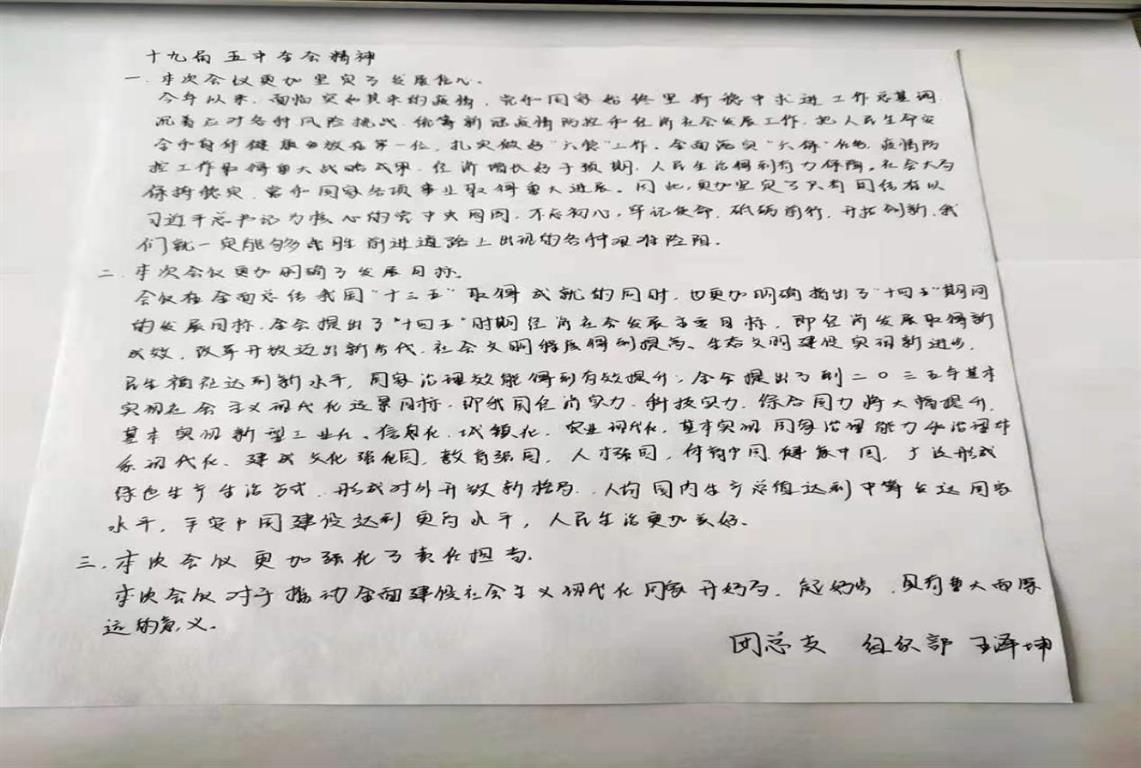 十九届五中全会精神
一、本次会议更加坚定了发展信心。
今年以来,面临突如其来的疫情,党和国家始终坚持稳中求进工作总基调
沉着应对各种风险挑战,统筹新冠疫情防控和经济社会发展工作,把人民生命安
全和身体健康放在第一位,扎实做好"六稳"工作,全面落实"六保"任务,疫情防
控工作取得重大战略成果,经济增长好于预期,人民生活得到有力保障。社会大局
保持稳定,党和国家各项事业取得重大进展。因此,更加坚定了只有团结在以
习近平总书记为核心的党中央周围,不忘初心,牢记使命,砥砺前行,开拓创新,我
们就一定能够战胜前进道路上出现的各种艰难险阻。
二、本次会议更加明确了发展目标。
会议在全面总结我国"十三五"取得成就的同时,也更加明确指出了"十四五"期间
的发展目标,全会提出了"十四五"时期经济社会发展主要目标,即经济发展取得新
成效,改革开放迈出新步伐,社会文明程度得到提高、生态文明建设实现新进步,
民生福祉达到新水平,国家治理效能得到有效提升;全会提出了到二〇三五年基本
实现社会主义现代化远景目标,即我国经济实力,科技实力,综合国力将大幅提升,
基本实现新型工业化、信息化,城镇化,农业现代化,基本实现国家治理能力和治理体
系现代化、建成文化强国,教育强国,人才强国,体育中国,健康中国,广泛形成
绿色生产生活方式,形成对外开放新格局,人均国内生产总值达到中等发达国家
水平,平安中国建设达到更高水平,人民生活更加美好。
三、本次会议更加强化了责任担当.
本次会议对于推动全面建设社会主义现代化国家开好局,起好步,具有重大而深
远的意义。
团总支 组织部 王泽坤